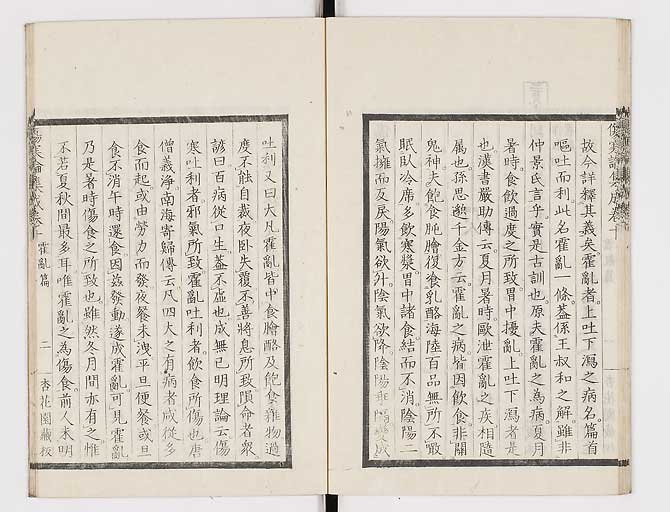 故今詳釋其義矣霍亂者上吐下瀉之病名篇首
嘔吐而利此名霍亂一條蓋係王叔和之解雖非
仲景氏言乎實是古訓也原夫霍亂之為病夏月
暑時食飲過度之所致胃中擾亂上吐下瀉者是
也漢書嚴助傳云夏月暑時歐泄霍亂之疾相隨
属也孫思邈千金方云霍亂之病皆因飲食非關
鬼神夫飽食肫膾復飡乳酪海陸百品無所不噉
眠臥冷席多飲寒漿胃中諸食結而不消陰陽二
氣擁而反戾陽氣欲升陰氣欲降陰陽乖隔變成
吐利又曰大凡霍亂皆中食膾酪及飽食雜物過
度不能自裁夜臥失覆不善將息所致隕命者衆
諺曰百病從口生蓋不虛也成無已明理論云傷
寒吐利者邪氣所致霍亂吐利者飲食所傷也唐
僧義淨南海寄歸傳云凡四大之有病者咸從多
食而起或由勞力而發夜餐未洩平旦便餐或旦
食不消午時還食因茲發動遂成霍亂可見霍亂
乃是暑時傷食之所致也雖然冬月間亦有之惟
不若夏秋間最多耳唯霍亂之為傷食前人未明
傷寒論集成卷十
霍亂篇
二
杏花園藏板